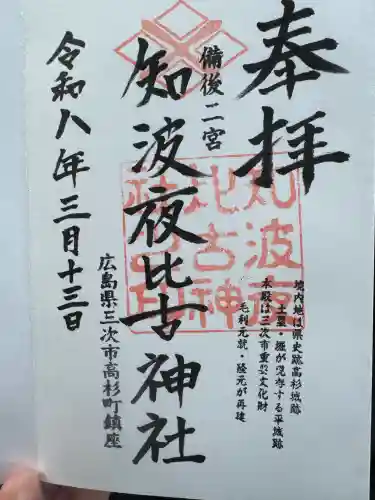 奉拝
境内地は県史跡高杉城跡
土塁・堀が現存する平城跡
本殿は三次市重要文化財
毛利元就・隆元が再建
備後二宮
知波夜比古神社
知波夜
比古神
社
広島県三次市高杉町鎮座
令和八年三月十三日